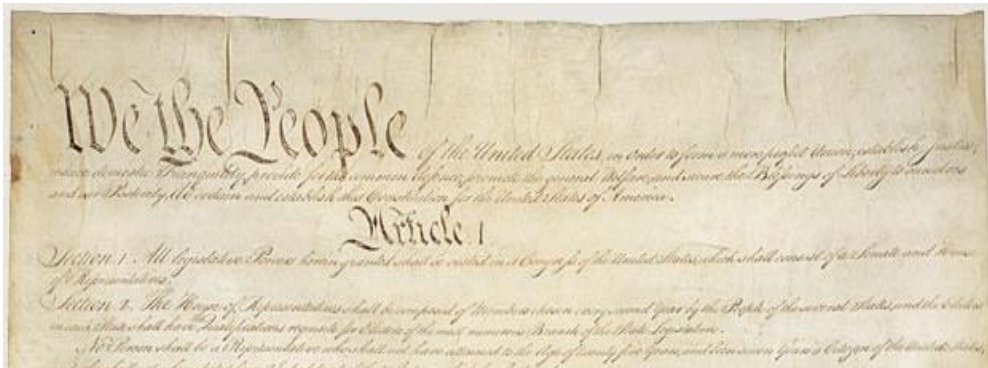 We the People of the United States, in Order to form a more perfect Union, establish Justice,
insure domestic Tranquility, provide for the common defence, promote the general Welfare, and secure the Blessings of Liberty to ourselves
and our Posterity, do ordain and establish this Constitution for the United States of America.
Article 1
Section 1. All legislative Powers herein granted shall be vested in a Congress of the United States, which shall consist of a Senate and House
of Representatives.
Section 2. The House of Representatives shall be composed of Members chosen every second Year by the People of the several States, and the Electors
in each State shall have Qualifications requisite for Electors of the most numerous Branch of the State Legislature.
No Person shall be a Representative who shall not have attained to the Age of twenty five Years, and been seven Years a Citizen of the United States,